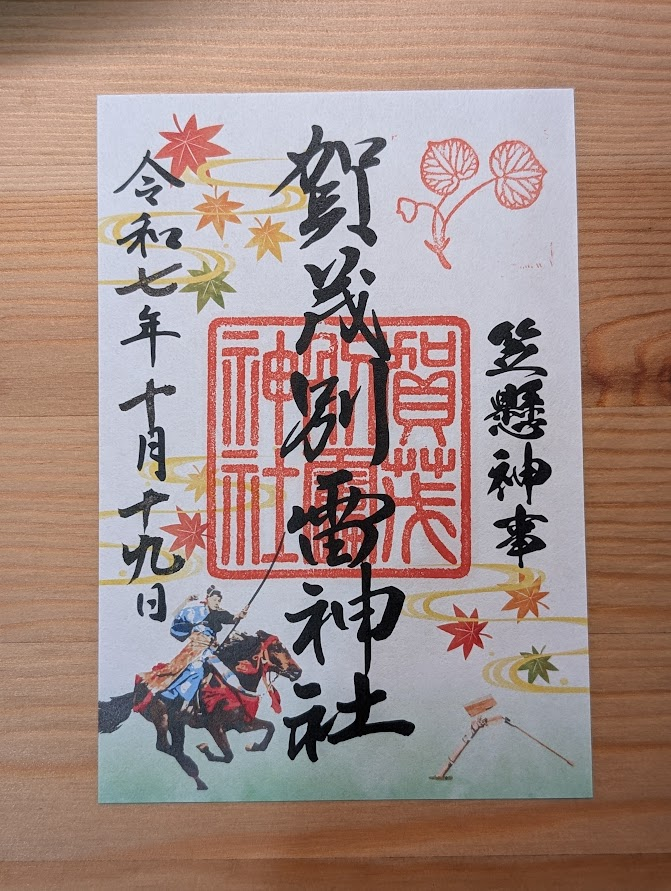 笠懸神事
賀茂別雷神社
賀茂別雷神社
令和七年十月十九日